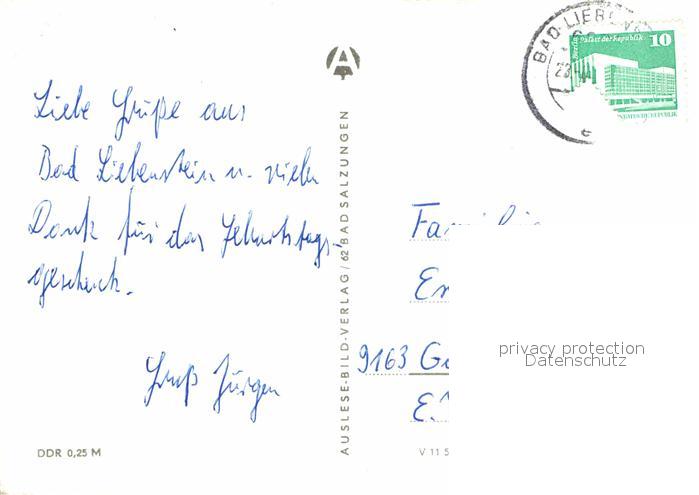 Liebe Grüße aus
Bad Liebenstein u. vielen
Dank für das Geburtstags-
geschenk.
Gruß Jürgen
DDR 0,25 M
AUSLESE-BILD-VERLAG / 62 BAD SALZUNGEN
BAD LIEBEN
Berlin, Palast der Republik
10
Familie
9163 G
V 11 5
privacy protection
Datenschutz